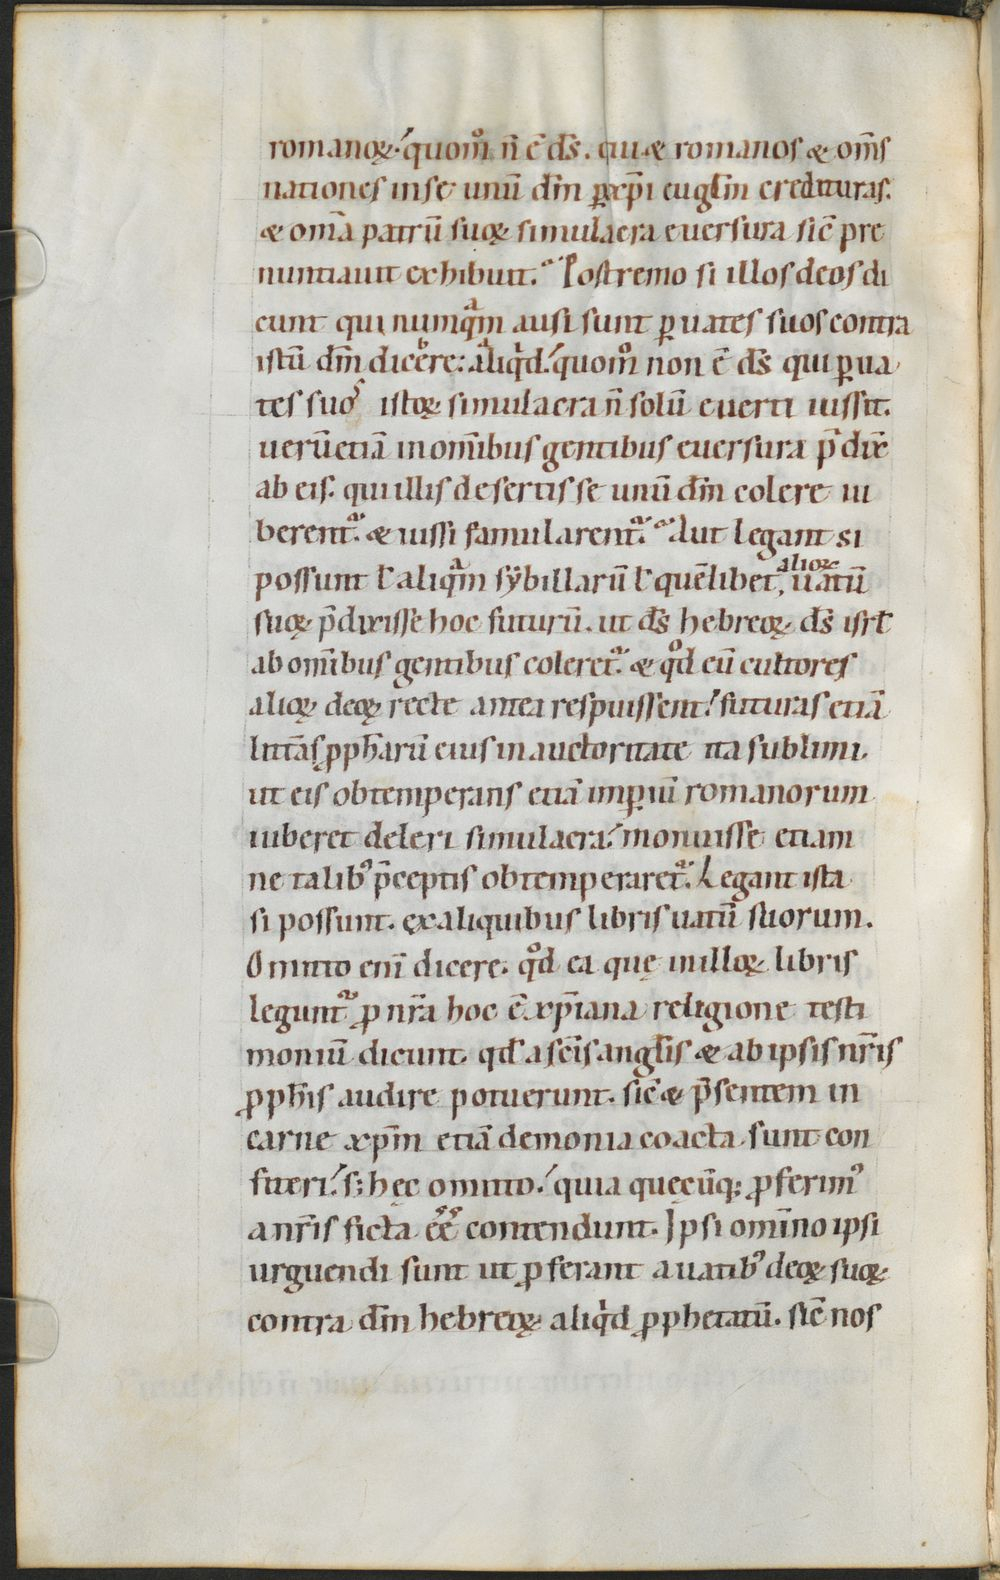 romanoꝝ. quom̊ n̄ ē ds̄. qui & romanos & om̄s
nationes in se unū dm̄ ꝑ xp̄i euḡlm credituras.
& om̄a patrū suoꝝ simulacra euersura sic̄ pre
nuntiauit exhibuit. Postremo si illos deos di
cunt qui numqᵃm ausi sunt ꝑ uates suos contra
istū dm̄ dicere: aliqͥd. quom̊ non ē ds̄ qui ꝑ ua
tes suos istoꝝ simulacra n̄ solū euerti iussit.
uerūetiā in om̄ibus gentibus euersura p̄dix̄
ab eis. qui illis desertis se unū dm̄ colere iu
berent᷑. & iussi famularent᷑. Aut legant si
possunt ł aliqᵃm sẏbillarū ł quēlibet, alioꝝ uatū
suoꝝ p̄dixisse hoc futurū. ut ds̄ hebreoꝝ. ds̄ isrł
ab om̄ibus gentibus coleret᷑. & qͦd eū cultores
alioꝝ deoꝝ recte antea respuissent. futuras etiā
litt̄as ꝓph̄arū eius in auctoritate ita sublimi.
ut eis obtemperans etiā imꝑiū romanorum
iuberet deleri simulacra. monuisse etiam
ne talibꝰ p̄ceptis obtemperaret᷑. Legant ista
si possunt. ex aliquibus libris uatū suorum.
Omitto enī dicere. qͦd ea quę in illoꝝ libris
legunt᷑ ꝓ nr̄a hoc ē xp̄iana religione testi
moniū dicunt. qd̄ a sc̄is anglīs & ab ipsis nr̄is
ꝓph̄is audire potuerunt. sic̄ & p̄sentem in
carne xp̄m etiā demonia coacta sunt con
fiteri. s; hęc omitto. quia quęcūq; ꝓferimꝰ
a nr̄is ficta ēē contendunt. Ipsi om̄ino ipsi
urguendi sunt ut ꝓferant a uatibꝰ deoꝝ suoꝝ
contra dm̄ hebreoꝝ aliqͥd ꝓphetatū. sic̄ nos